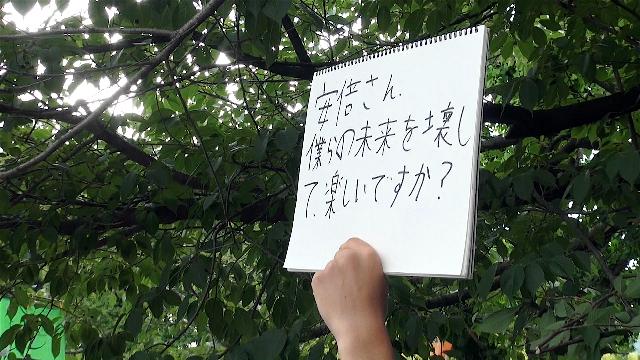 安倍さん、
僕らの未来を壊し
て、楽しいですか?